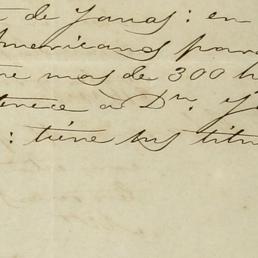 de Janos: en
Americanos para
mas de 300 h
tenece a Dn. Y
: tiene sus titu